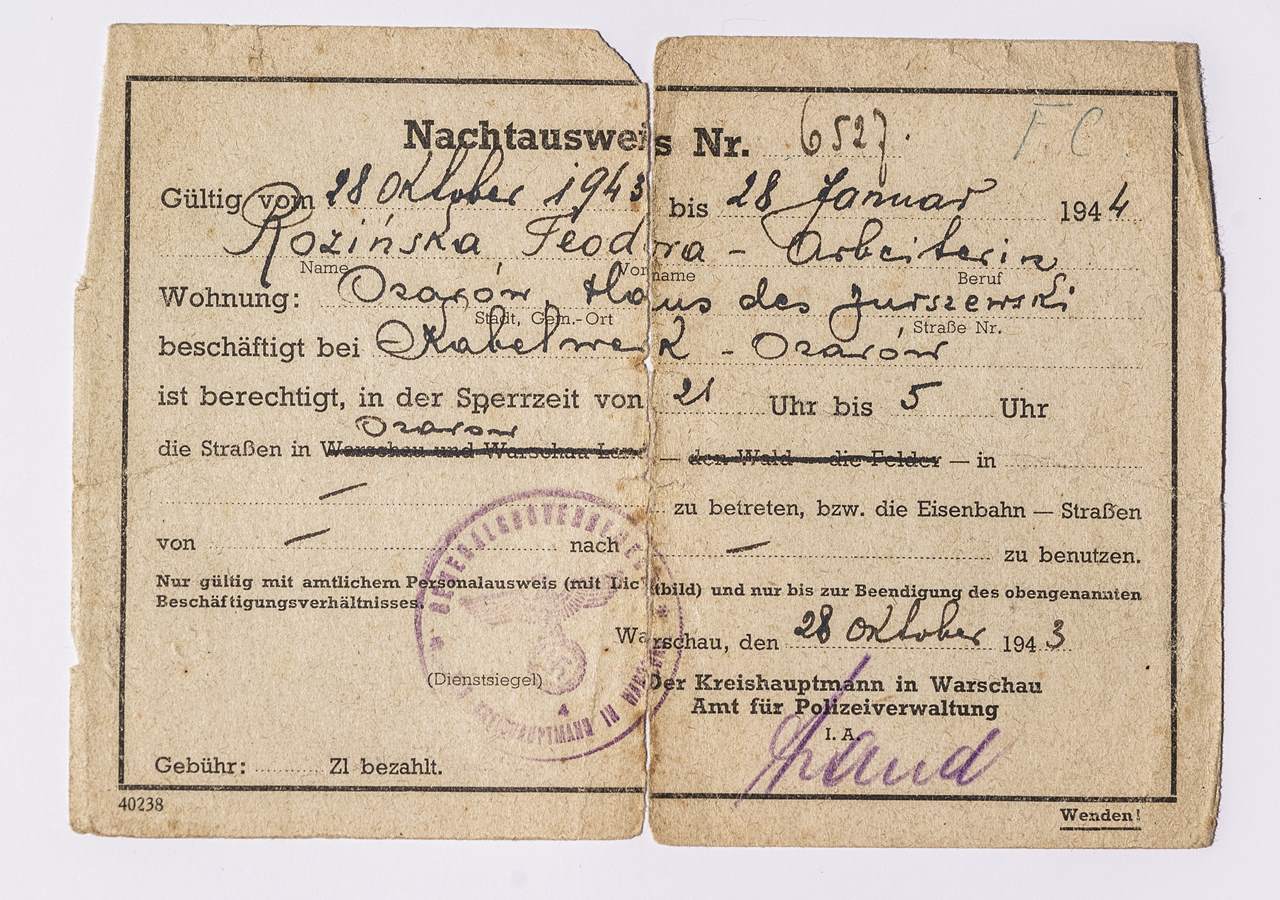 Nachtausweis Nr. 6527.
F. C.
Gültig vom 28 Oktober 1943 bis 28 Januar 1944
Rozińska, Feodora - Arbeiterin
Name Vorname Beruf
Wohnung: Ożarów, Haus des Jurszewski
Stadt, Gem.-Ort Straße Nr.
beschäftigt bei Kabelwerk - Ożarów
ist berechtigt, in der Sperrzeit von 21 Uhr bis 5 Uhr
Ożarów
die Straßen in Warschau und Warschau Land — den Wald — die Felder — in
— zu betreten, bzw. die Eisenbahn — Straßen
von — nach — zu benutzen.
Nur gültig mit amtlichem Personalausweis (mit Lichtbild) und nur bis zur Beendigung des obengenannten
Beschäftigungsverhältnisses.
Warschau, den 28 Oktober 1943
(Dienstsiegel)
GENERALGOUVERNEMENT
KREISHAUPTMANN IN WARSCHAU
4
Der Kreishauptmann in Warschau
Amt für Polizeiverwaltung
I. A.
Gebühr: Zl bezahlt.
40238
Wenden!